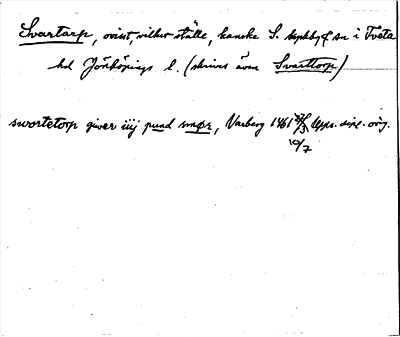 Svartarp, ovisst, vilket ställe, kanske S. kyrkby o sn i Tveta
hd Jönköpings l. (skrives även Svarttorp)
swortetorp giver iiij pund smør, Varberg 1461 Upps. dipl. orig.
10/7